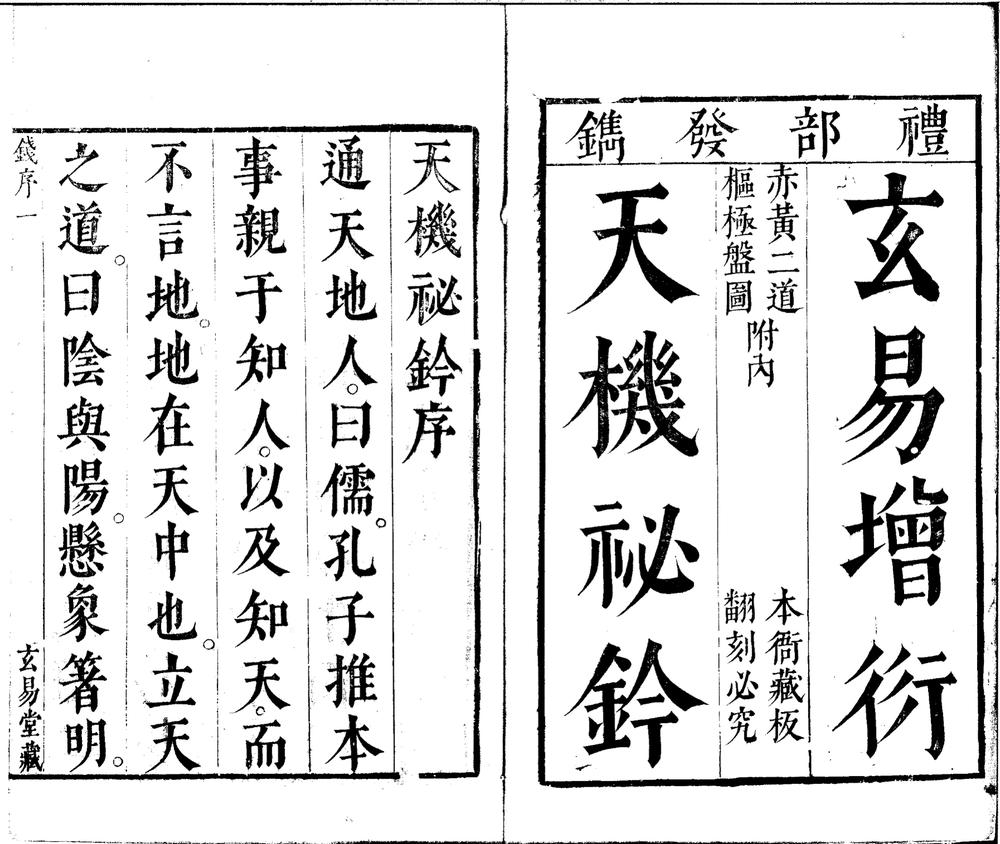 禮部發鐫
玄易增衍
赤黃二道
樞極盤圖
附內
本衙藏板
翻刻必究
天機祕鈐
天機祕鈐序
通天地人。曰儒。孔子推本
事親于知人。以及知天。而
不言地。地在天中也。立天
之道。曰陰與陽。懸象箸明。
錢序一
玄易堂藏